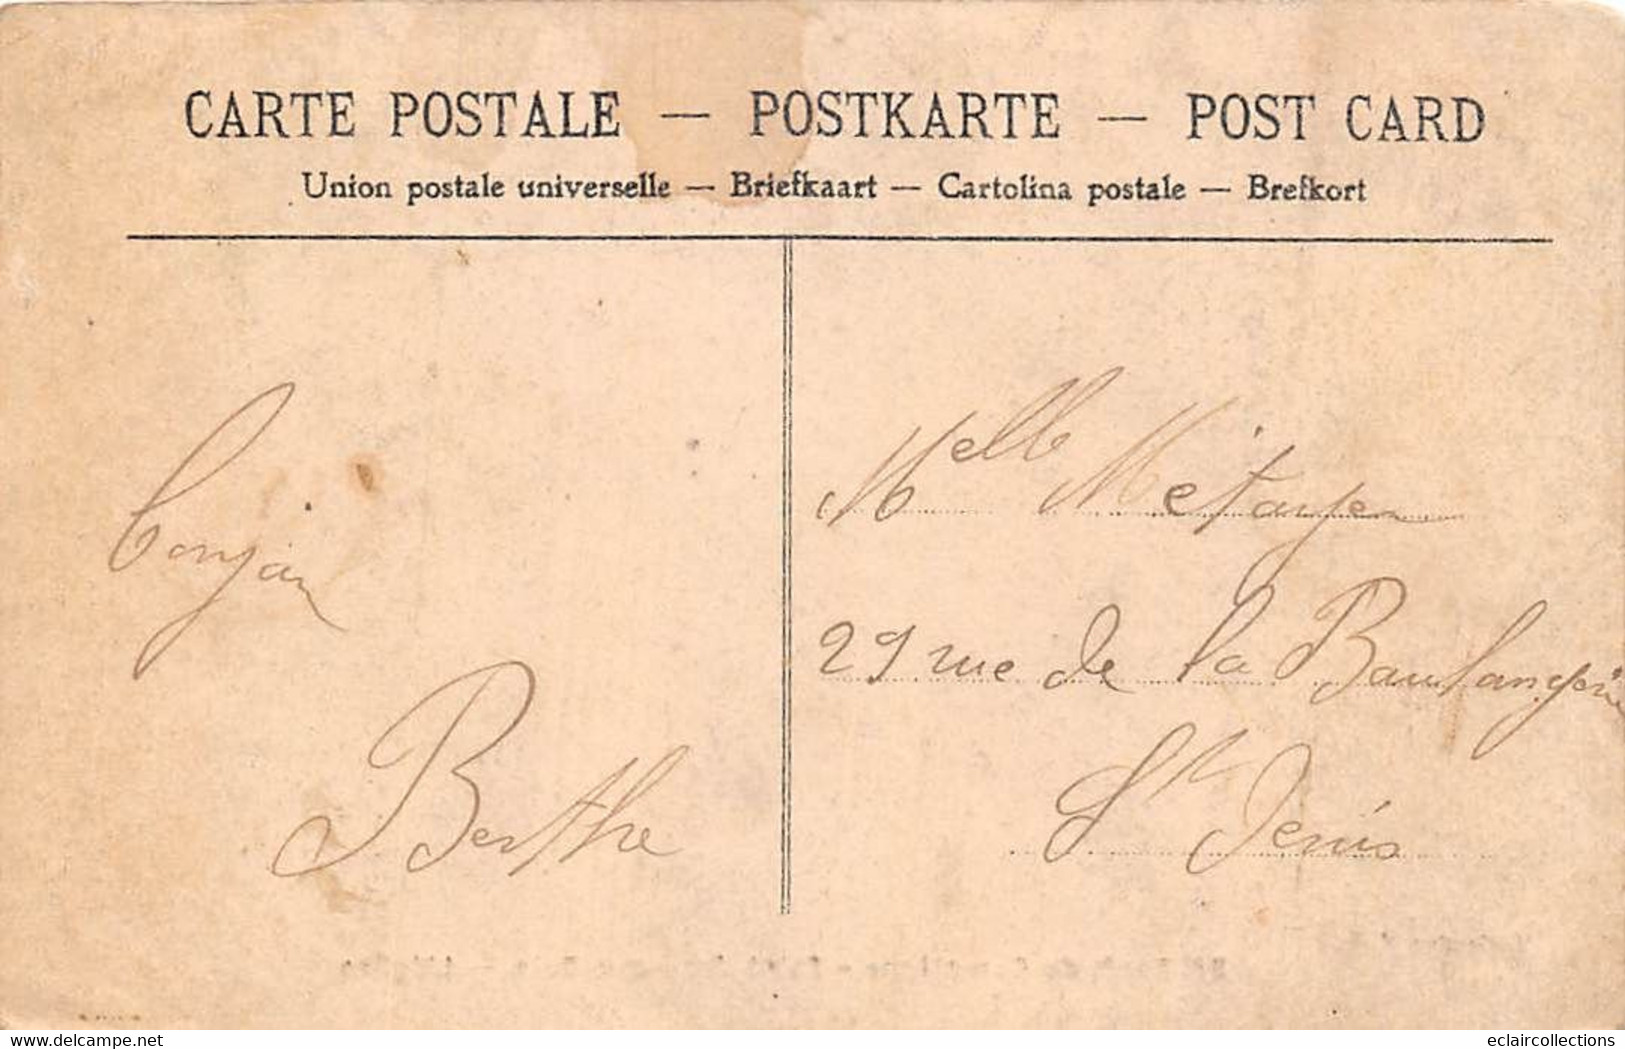 CARTE POSTALE — POSTKARTE — POST CARD
Union postale universelle — Briefkaart — Cartolina postale — Brefkort
Bonjour
Berthe
Melle Métayer
29 rue de la Boulangerie
St Denis
delcampe.net
eclaircollections